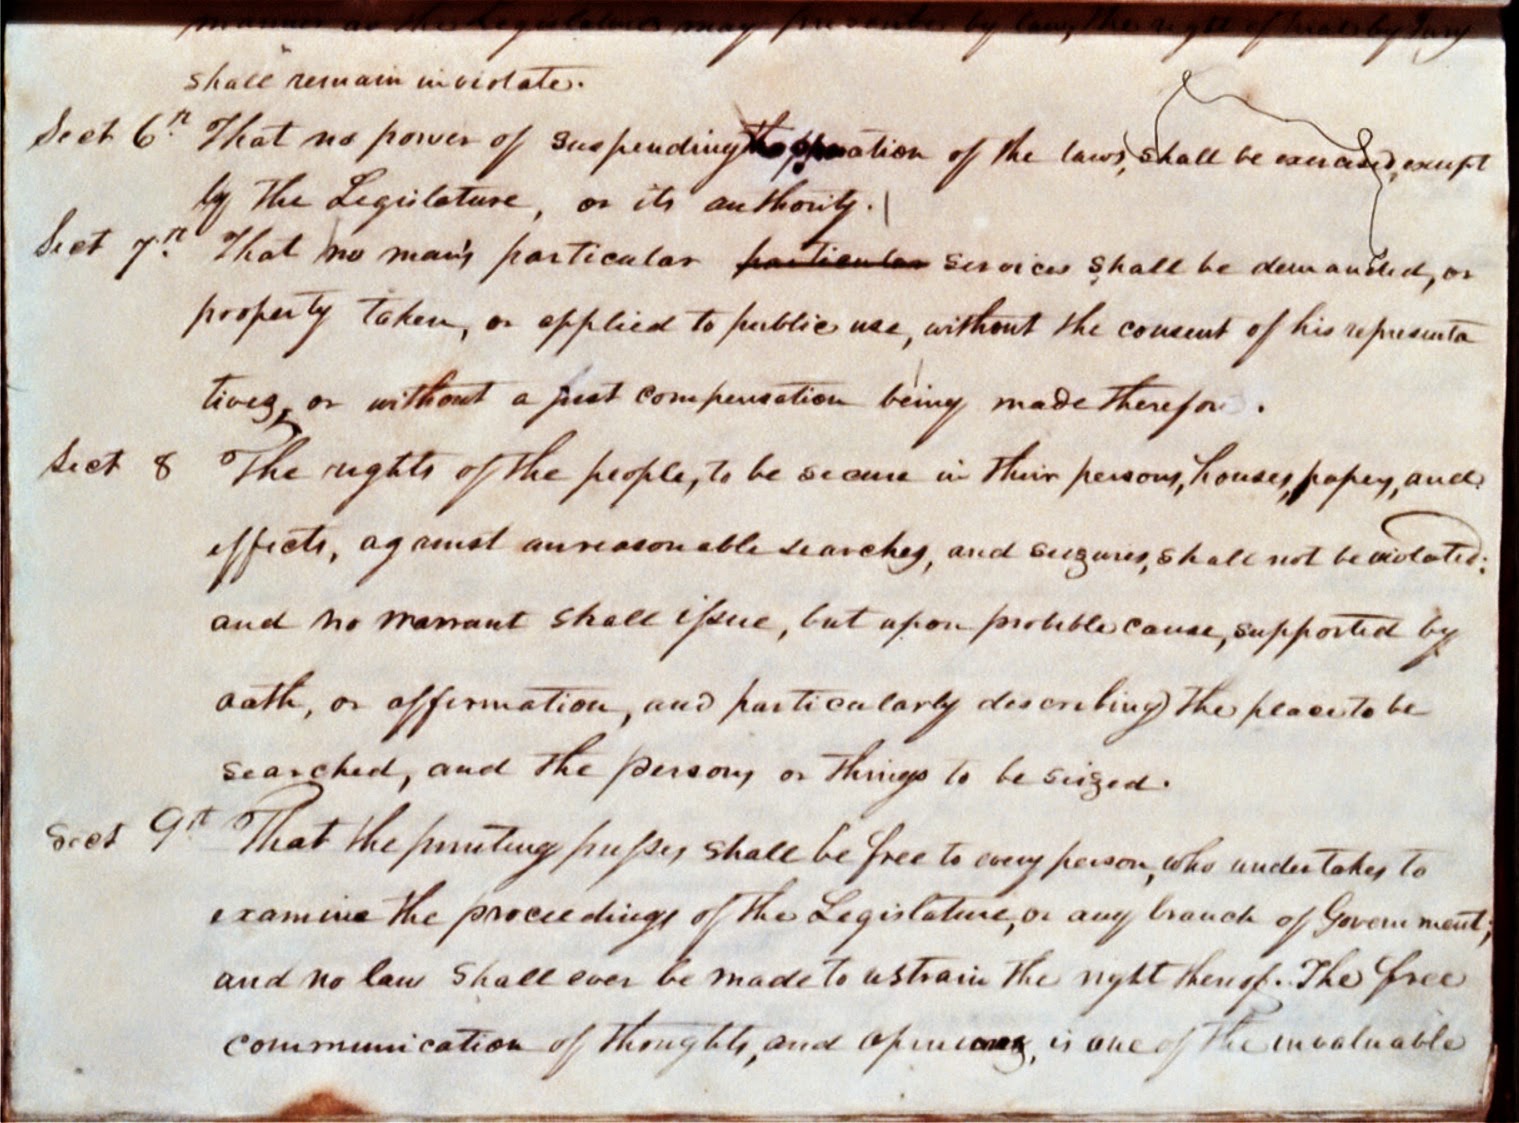 manner as the Legislature may prescribe by law, the right of trial by Jury
shall remain inviolate.
Sect 6th. That no power of suspending the operation of the laws, shall be exercised, except
by the Legislature, or its authority.
Sect 7th. That no man's particular particular services shall be demanded, or
property taken, or applied to public use, without the consent of his representa
tives, or without a just compensation being made therefor.
Sect 8 The rights of the people, to be secure in their persons, houses, papers, and
effects, against unreasonable searches, and seizures, shall not be violated:
and no warrant shall issue, but upon probible cause, supported by
oath, or affirmation, and particularly describing the place to be
searched, and the persons or things to be seized.
Sect 9th That the printing presses shall be free to every person, who undertakes to
examine the proceedings of the Legislature, or any branch of Government;
and no law shall ever be made to restrain the right thereof. The free
communication of thoughts, and opinions, is one of the invaluable